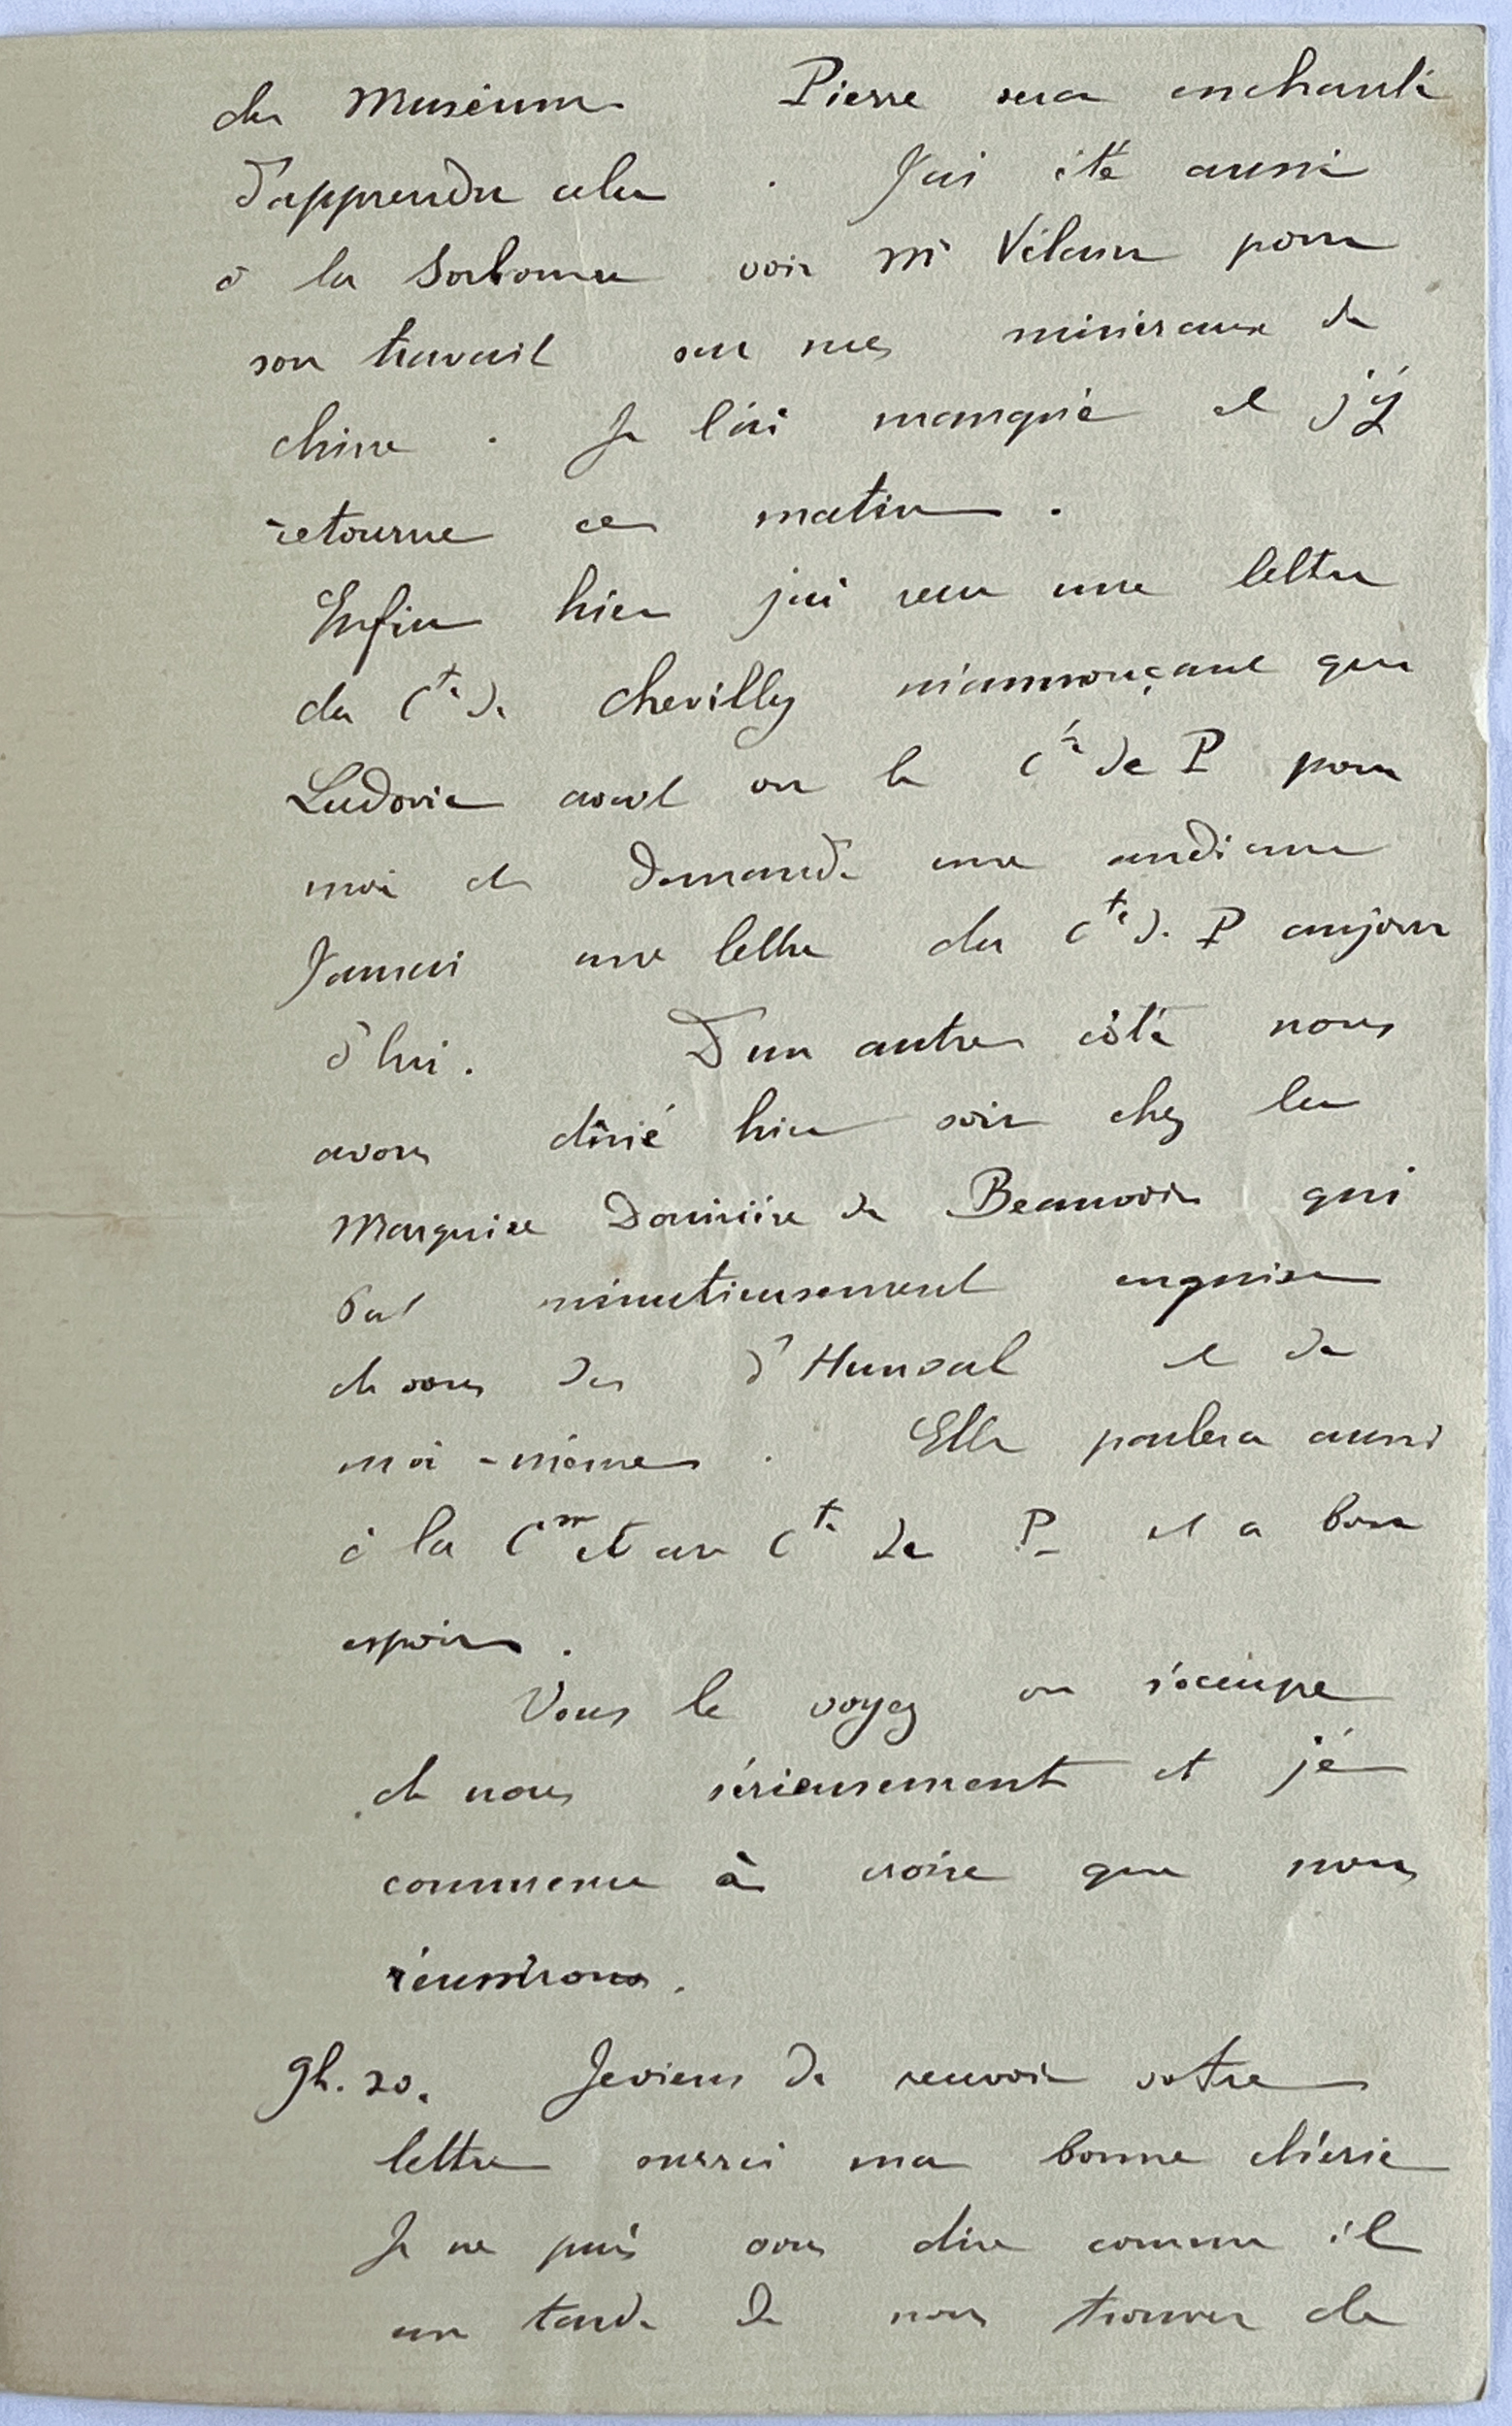 du Muséum Pierre sera enchanté
d'apprendre cela . J'ai été aussi
à la Sorbonne voir Mr Vélain pour
son travail sur mes minéraux de
chine . Je l'ai manqué et j'y
retourne ce matin .
Enfin hier j'ai reçu une lettre
du Cte de Chevilly m'annonçant que
Ludovic avait vu le Cte de P pour
moi et demandé une audience
J'aurai une lettre du Cte de P aujour
d'hui . D'un autre côté nous
avons dîné hier soir chez la
Marquise de Beauvoir qui
s'est minutieusement enquise
de vous des d'Hunval et de
moi-même . Elle parlera aussi
à la Csse et au Cte de P et a bon
espoir .
Vous le voyez on s'occupe
de nous sérieusement et je
commence à croire que nous
réussirons .
9h.20. Je viens de recevoir votre
lettre merci ma bonne chérie
Je ne puis vous dire comme il
me tarde de nous trouver